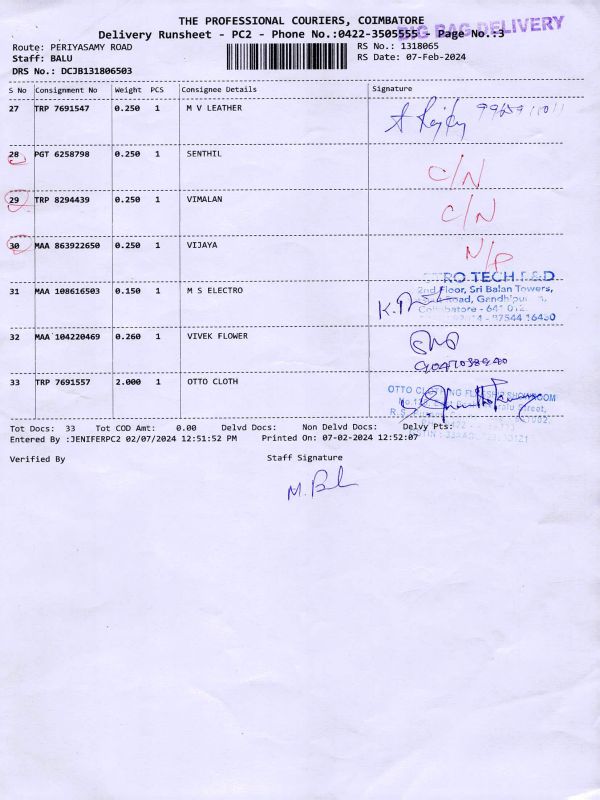 THE PROFESSIONAL COURIERS, COIMBATORE
BIG BAG DELIVERY
Delivery Runsheet - PC2 - Phone No.:0422-3505555 - Page No.:3
Route: PERIYASAMY ROAD RS No.: 1318065
Staff: BALU RS Date: 07-Feb-2024
DRS No.: DCJB131806503
S No Consignment No Weight PCS Consignee Details Signature
27 TRP 7691547 0.250 1 M V LEATHER
28 PGT 6258798 0.250 1 SENTHIL C/N
29 TRP 8294439 0.250 1 VIMALAN C/N
30 MAA 863922650 0.250 1 VIJAYA N/P
TRO TECH R&D
2nd Floor, Sri Balan Towers,
31 MAA 108616503 0.150 1 M S ELECTRO Road,
Coimbatore - 641 012.
87544 16450
32 MAA 104220469 0.260 1 VIVEK FLOWER
33 TRP 7691557 2.000 1 OTTO CLOTH
OTTO CLOTHING SHOWROOM
Tot Docs: 33 Tot COD Amt: 0.00 Delvd Docs: Non Delvd Docs: Delvy Pts:
Entered By :JENIFERPC2 02/07/2024 12:51:52 PM Printed On: 07-02-2024 12:52:07
Verified By Staff Signature